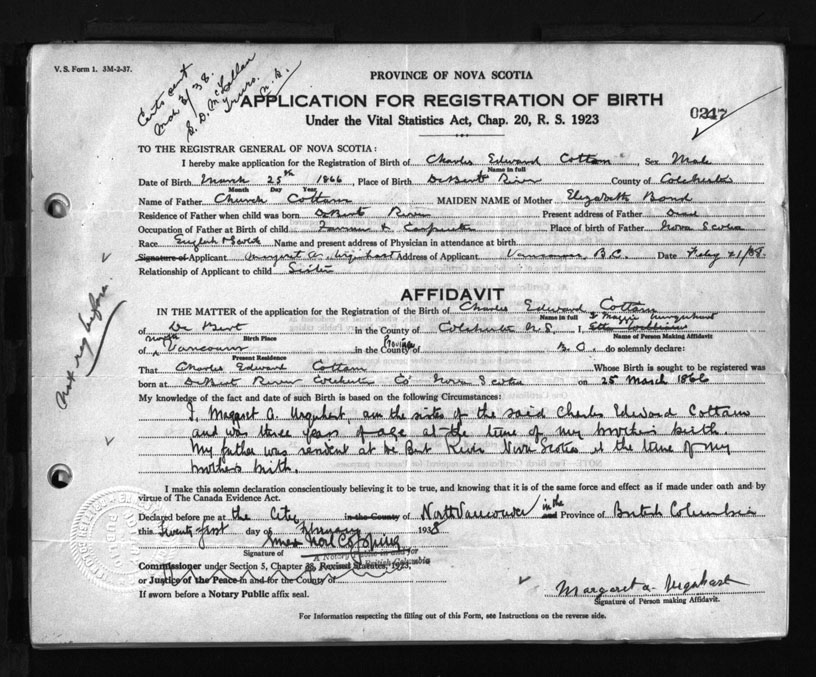 V. S. Form 1. 3M-2-37.
PROVINCE OF NOVA SCOTIA
APPLICATION FOR REGISTRATION OF BIRTH
0247
Under the Vital Statistics Act, Chap. 20, R. S. 1923
TO THE REGISTRAR GENERAL OF NOVA SCOTIA:
I hereby make application for the Registration of Birth of Charles Edward Cottam, Sex Male
Name in full
Date of Birth March 25th 1866, Place of Birth DeBert River County of Colchester
Month Day Year
Name of Father Church Cottam MAIDEN NAME of Mother Elizabeth Bond
Residence of Father when child was born DeBert River Present address of Father Dead
Occupation of Father at Birth of child Farmer & Carpenter Place of birth of Father Nova Scotia
Race English & Scotch Name and present address of Physician in attendance at birth
Signature of Applicant Margaret A. Urquhart Address of Applicant Vancouver, B.C. Date Feby 21/38
Relationship of Applicant to child Sister
AFFIDAVIT
IN THE MATTER of the application for the Registration of the Birth of Charles Edward Cottam
Name in full
of De Bert in the County of Colchester N.S. I,
Birth Place Name of Person Making Affidavit
of North Vancouver in the County of Province B.C. do solemnly declare:
Present Residence
That Charles Edward Cottam Whose Birth is sought to be registered was
born at DeBert River Colchester Co Nova Scotia on 25 March 1866
My knowledge of the fact and date of such Birth is based on the following Circumstances:
I, Margaret A. Urquhart, am the sister of the said Charles Edward Cottam
and was three years of age at the time of my brother's birth.
My father was resident at De Bert River Nova Scotia at the time of my
brother's birth.
Not reg before.
I make this solemn declaration conscientiously believing it to be true, and knowing that it is of the same force and effect as if made under oath and by
virtue of The Canada Evidence Act.
Declared before me at the City in the County of North Vancouver in the and Province of British Columbia
this Twenty first day of February 1938
Signature of
A Notary Public in and for
British Columbia
Commissioner under Section 5, Chapter 38, Revised Statutes, 1923.
or Justice of the Peace in and for the County of
If sworn before a Notary Public affix seal.
Margaret A. Urquhart
Signature of Person making Affidavit.
For Information respecting the filling out of this Form, see Instructions on the reverse side.